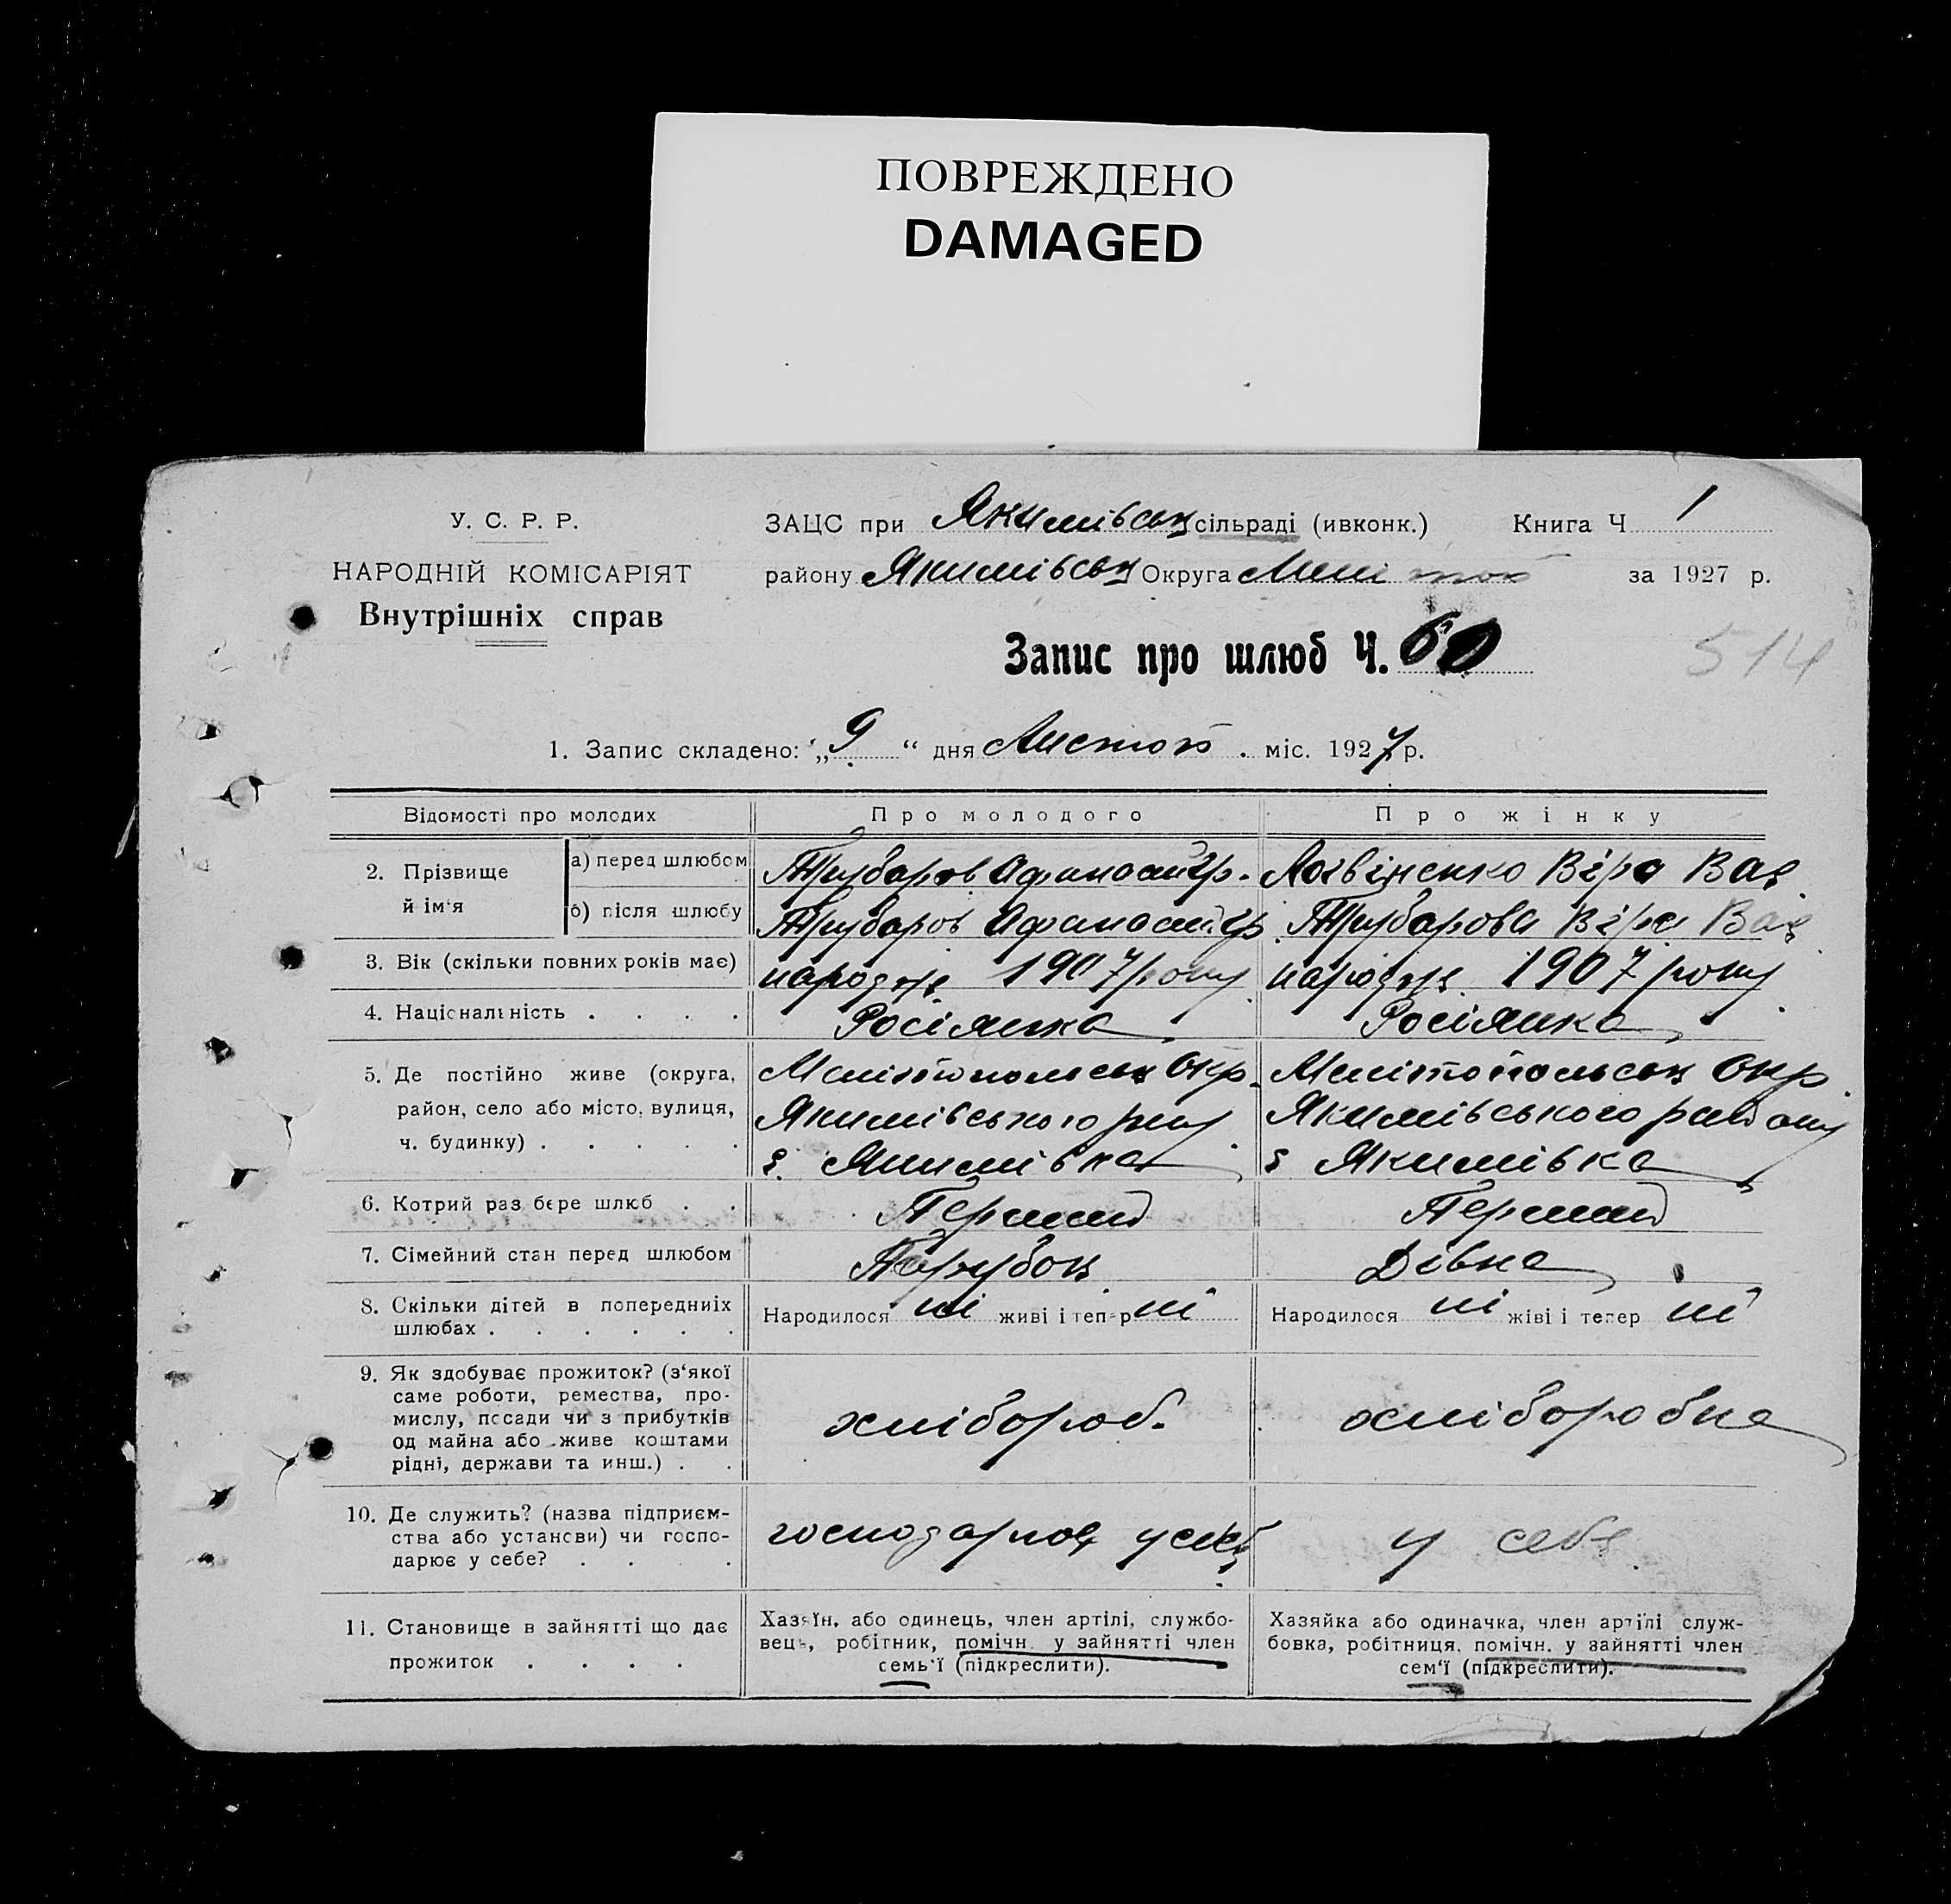 ПОВРЕЖДЕНО
DAMAGED
У. С. Р. Р.
НАРОДНІЙ КОМІСАРІЯТ
Внутрішніх справ
ЗАЦС при Якимівськ сільраді (ивконк.) Книга Ч 1
району Якимівськ Округа Мелітоп за 1927 р.
Запис про шлюб Ч. 60
514
1. Запис складено: „9“ дня Листоп. міс. 1927 р.
Відомості про молодих Про молодого Про жінку
2. Прізвище й ім‘я
а) перед шлюбом Трубаров Афанасій Гр. Логвіненко Віра Вас
б) після шлюбу Трубаров Афанасій Гр. Трубарова Віра Вас
3. Вік (скільки повних років має) народж. 1907 року народж. 1907 року
4. Національність . . . . Росіянка Росіянка
5. Де постійно живе (округа, Мелітопольськ Окр. Мелітопольськ Окр.
район, село або місто, вулиця, Якимівського рну Якимівського району
ч. будинку) . . . . . с. Якимівка с Якимівка
6. Котрий раз бере шлюб . . Перший Перший
7. Сімейний стан перед шлюбом Парубок Дівка
8. Скільки дітей в попередниіх Народилося ні живі і тепер ні Народилося ні жіві і тепер ні
шлюбах . . . . . .
9. Як здобуває прожиток? (з‘якої
саме роботи, ремества, про-
мислу, посади чи з прибутків хлібороб. хліборобка
од майна або живе коштами
рідні, держави та инш.) . .
10. Де служить? (назва підприєм-
ства або установи) чи госпо- господарює у себе у себе
дарює у себе? . . . .
11. Становище в зайнятті що дає
прожиток . . . .
Хазяїн, або одинець, член артілі, службо-
вець, робітник, помічн. у зайнятті член
семь‘ї (підкреслити).
Хазяйка або одиначка, член артілі служ-
бовка, робітниця, помічн. у зайнятті член
сем‘ї (підкреслити).